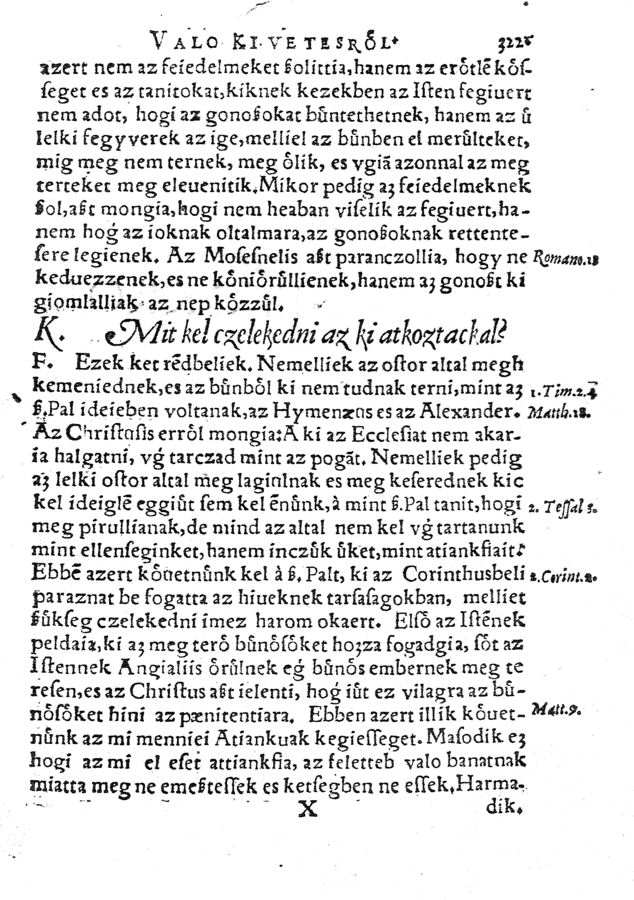 VALO KI VETESRŐL. 322
azert nem az feiedelmeket ßolittia, hanem az erőtlē kőſ-
ſeget es az tanitokat, kiknek kezekben az Iſten fegiuert
nem adot, hogi az gonoßokat bűntethetnek, hanem az ű
lelki fegyverek az ige, melliel az bűnben el merűlteket,
mig meg nem ternek, meg őlik, es vgiā azonnal az meg
terteket meg eleuenitik. Mikor pedig aʒ feiedelmeknek
ßol, aßt mongia, hogi nem heaban viſelik az fegiuert, ha-
nem hog̀ az ioknak oltalmara, az gonoßoknak rettente-
ſere legienek. Az Moſeſnelis aßt paranczollia, hogy ne Romano.13
keduezzenek, es ne kőniőrűllienek, hanem aʒ gonoßt ki
giomlalliak az nep kőzzűl.
K. Mit kel czelekedni az ki atkoztackal?
F. Ezek ket rēdbeliek. Nemelliek az oſtor altal megh
kemeniednek, es az bűnből ki nem tudnak terni, mint aʒ 1. Tim. 2. 4
ß. Pal ideieben voltanak, az Hymenæus es az Alexander. Matth. 18.
Az Chriſtuſis erről mongia: A ki az Eccleſiat nem akar-
ia halgatni, vg̀ tarczad mint az pogāt. Nemelliek pedig
aʒ lelki oſtor altal meg lagiulnak es meg keſerednek kic
kel ideiglē eggiűt ſem kel ēnűnk, à mint ß. Pal tanit, hogi 2. Teſſal 3.
meg pirullianak, de mind az altal nem kel vg̀ tartanunk
mint ellenſeginket, hanem inczűk űket, mint atiankfiait.
Ebbē azert kőuetnűnk kel à ß. Palt, ki az Corinthusbeli 2. Corint. 2.
paraznat be fogatta az hiueknek tarſaſagokban, melliet
ßűkſeg czelekedni imez harom okaert. Elſő az Iſtēnek
peldaia, ki aʒ meg terő bűnőſőket hoʒza fogadgia, ſőt az
Iſtennek Angialiis őrűlnek eg̀ bűnős embernek meg te
reſen, es az Chriſtus aßt ielenti, hog̀ iűt ez vilagra az bű-
nőſőket hini az pænitentiara. Ebben azert illik kőuet- Matt. 9.
nűnk az mi menniei Atiankuak kegieſſeget. Maſodik eʒ
hogi az mi el eſet attiankfia, az feletteb valo banatnak
miatta meg ne emeßteſſek es ketſegben ne eſſek. Harma-
X dik.